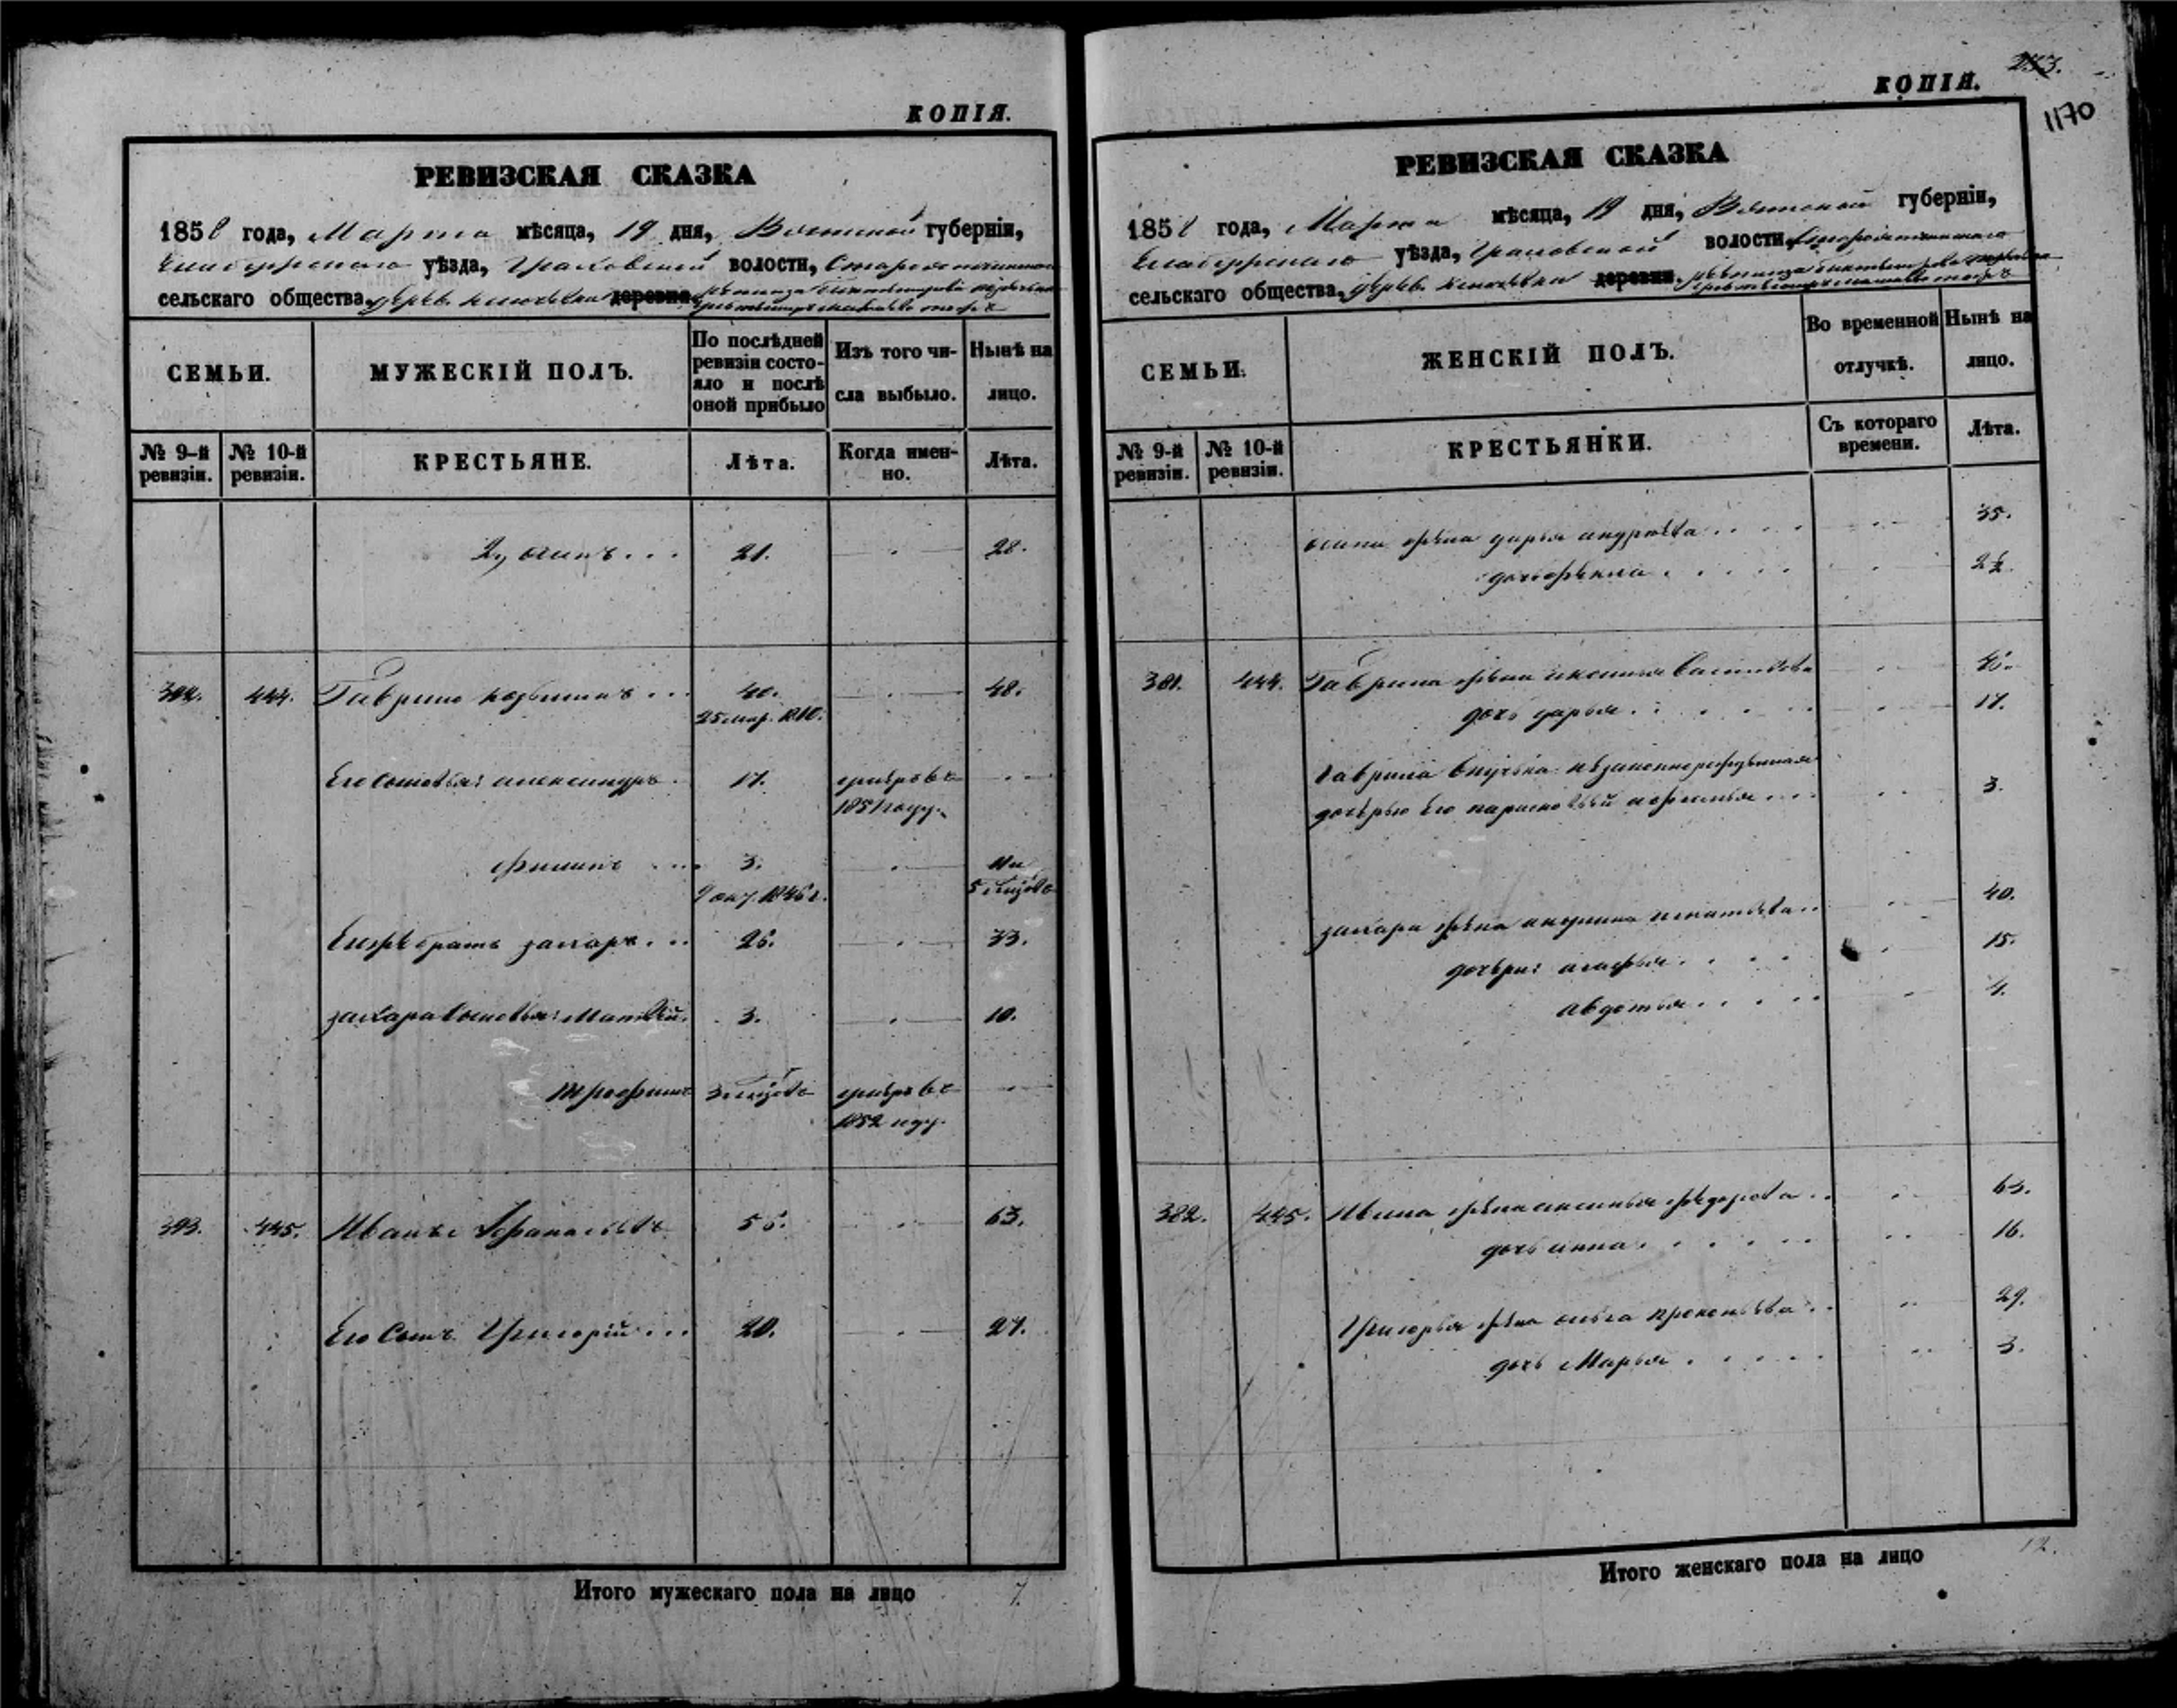 КОПІЯ.
РЕВИЗСКАЯ СКАЗКА
1858 года, Марта мѣсяца, 19 дня, Вятской губерніи,
Елабужскаго уѣзда, Граховской волости,
сельскаго общества, дерев. деревня
СЕМЬИ.
МУЖЕСКІЙ ПОЛЪ.
По послѣдней ревизіи состояло и послѣ оной прибыло
Изъ того числа выбыло.
Нынѣ на лицо.
№ 9-й ревизіи.
№ 10-й ревизіи.
КРЕСТЬЯНЕ.
Лѣта.
Когда именно.
Лѣта.
2, осипъ... 21. 28.
392. 444. Гаврило козьминъ... 40. 48.
25 мар. 1810.
Его сыновья: александръ. 17. умеръ въ
1851 году.
филипъ 3. 11 и
9 окт. 1846 г. 5 месяцовъ
Его же братъ захаръ... 26. 33.
захара сыновья: Матвѣй. 3. 10.
трофимъ 3 месяцовъ умеръ въ
1852 году.
393. 445. Иванъ Афанасьевъ 56. 63.
Его Сынъ Григорій... 20. 27.
Итого мужескаго пола на лицо 7.
253.
КОПІЯ.
1170
РЕВИЗСКАЯ СКАЗКА
1858 года, Марта мѣсяца, 19 дня, Вятской губерніи,
Елабужскаго уѣзда, Граховской волости,
сельскаго общества, дерев. деревня
СЕМЬИ.
ЖЕНСКІЙ ПОЛЪ.
Во временной отлучкѣ.
Нынѣ на лицо.
№ 9-й ревизіи.
№ 10-й ревизіи.
КРЕСТЬЯНКИ.
Съ котораго времени.
Лѣта.
осипа жена дарья андреева.... 35.
дочь 2½.
381. 444. Гаврила жена Васильева
дочь дарья. 17.
Гаврила внучька незаконнорожденная
дочерью Его 3.
захара жена акулина игнатьева.. 40.
дочери: агафья. 15.
авдотья..... 4.
382. 445. Ивана жена аксинья федорова.. 63.
дочь анна. 16.
Григорья жена ольга прокопьева.. 29.
дочь Марья. 3.
Итого женскаго пола на лицо 12.